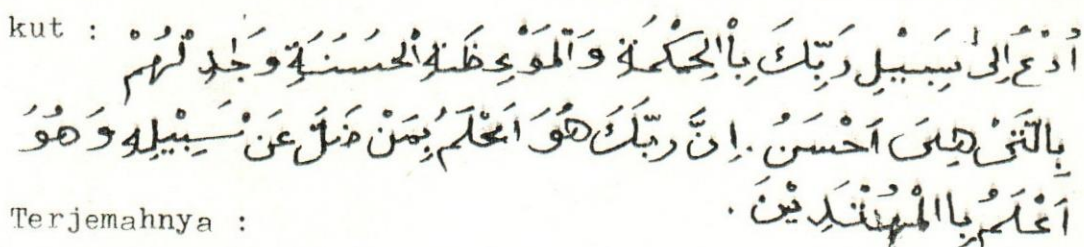 kut :
اُدْعُ اِلٰى سَبِيْلِ رَبِّكَ بِاْلحِكْمَةِ وَاْلمَوْعِظَةِ اْلحَسَنَةِ وَجَادِلْهُمْ
بِالَّتِيْ هِيَ اَحْسَنُ . اِنَّ رَبَّكَ هُوَ اَعْلَمُ بِمَنْ ضَلَّ عَنْ سَبِيْلِهِ وَهُوَ
اَعْلَمُ بِاالْمُهْتَدِيْنَ .
Terjemahnya :